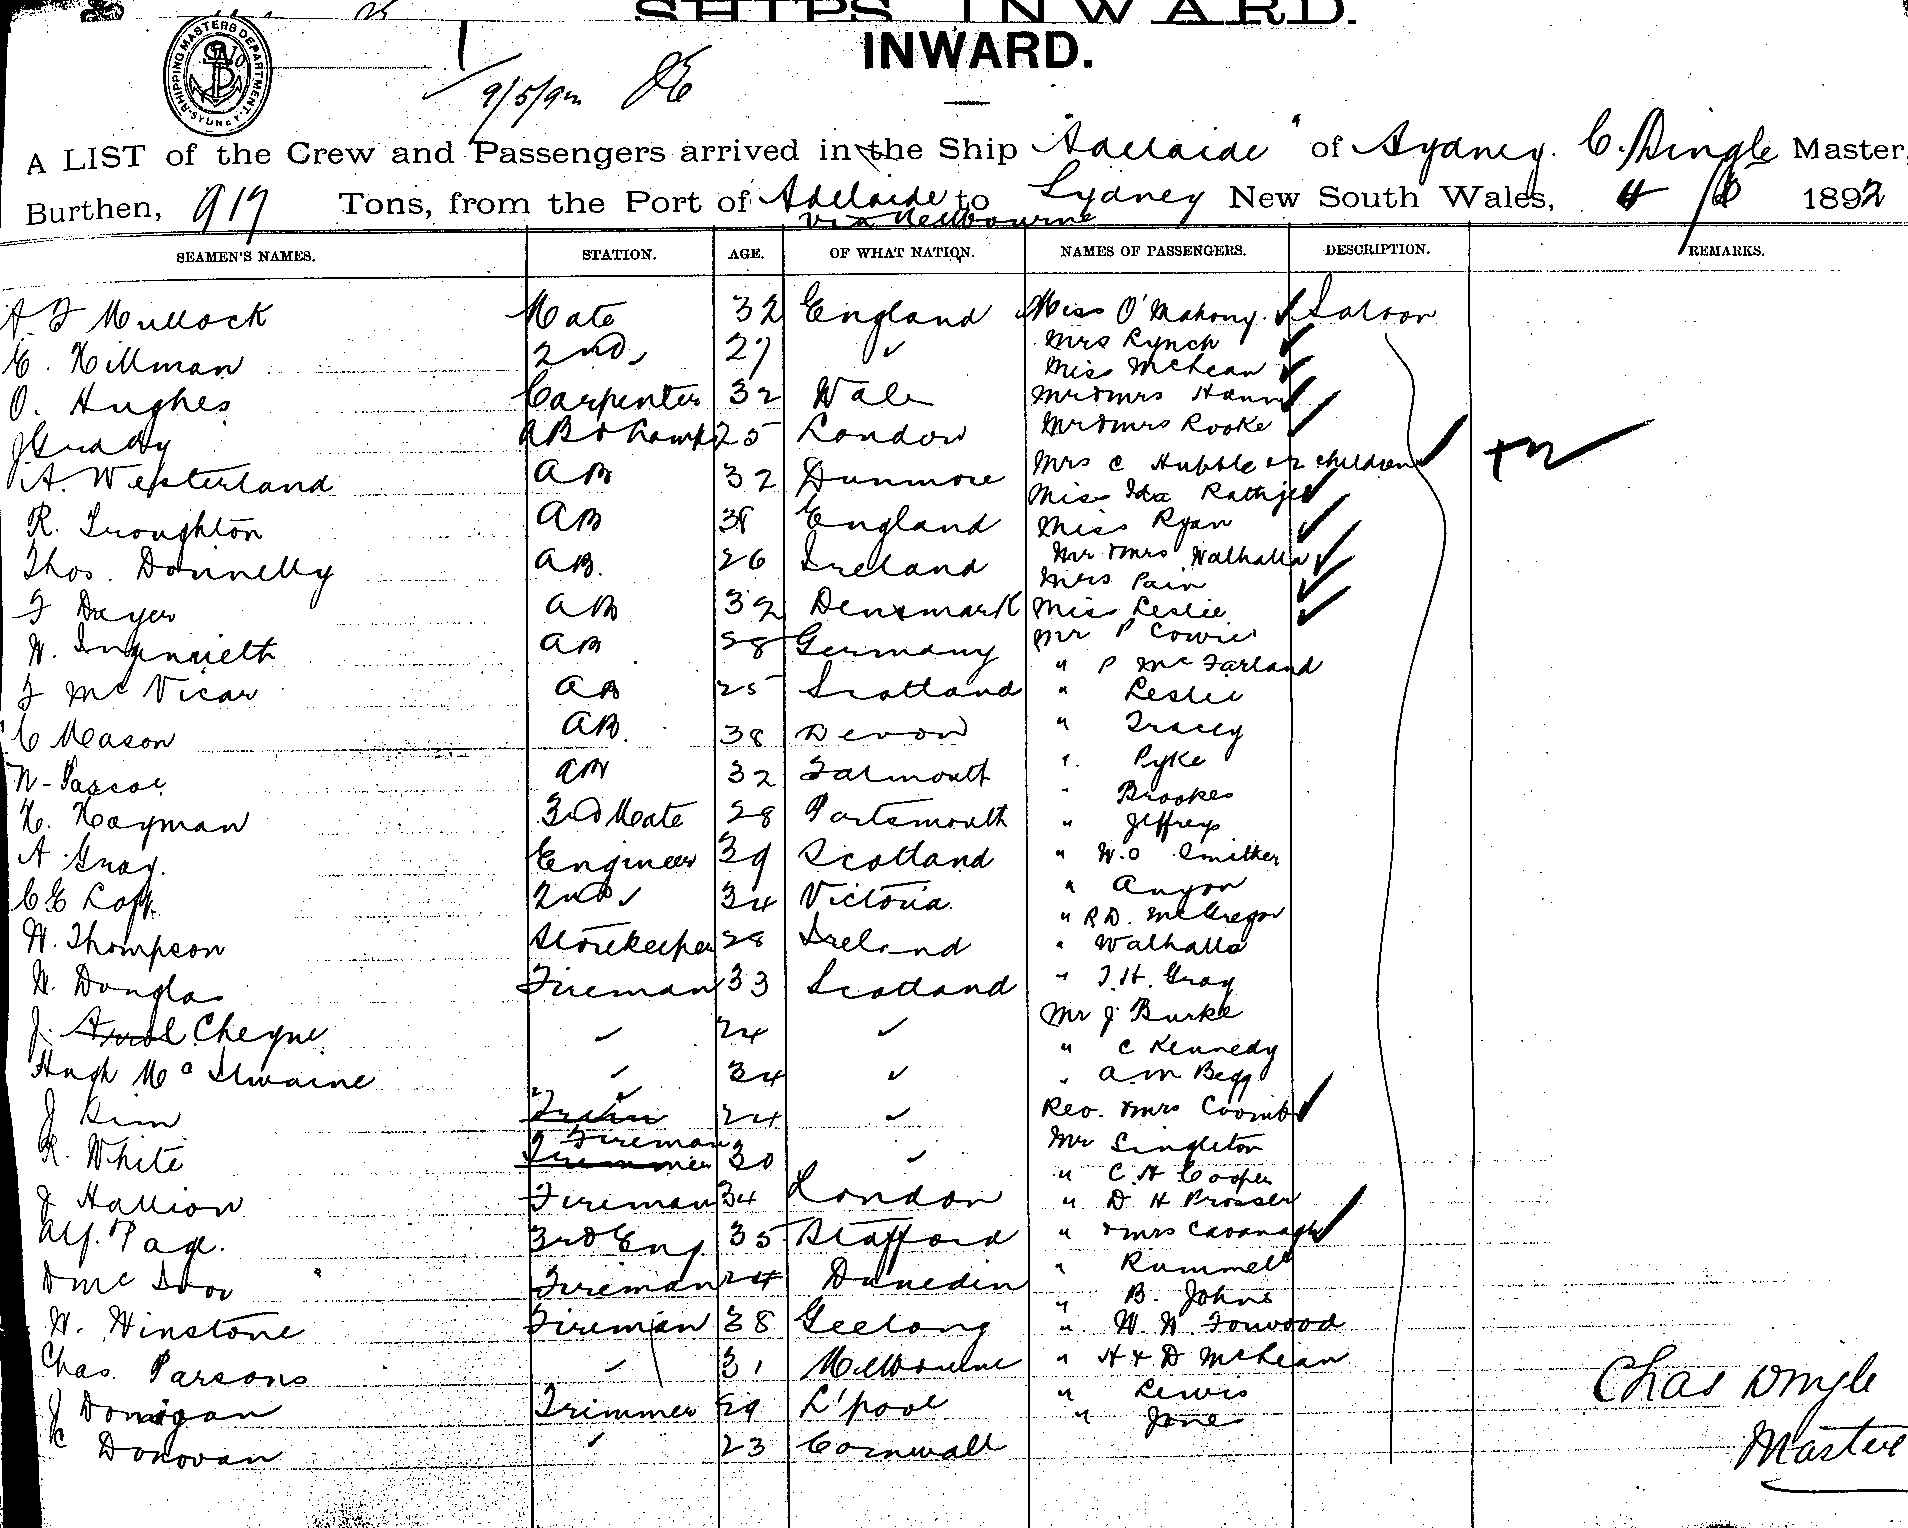 SHIPS INWARD.
INWARD.
SHIPPING MASTERS DEPARTMENT SYDNEY
9/5/92
A LIST of the Crew and Passengers arrived in the Ship "Adelaide" of Sydney. C. Dingle Master,
Burthen, 919 Tons, from the Port of Adelaide to Sydney New South Wales, 1892
via Melbourne
SEAMEN'S NAMES. STATION. AGE. OF WHAT NATION. NAMES OF PASSENGERS. DESCRIPTION. REMARKS.
A. F Mullock Mate 32 England Miss O'Mahony. Saloon
E. Hillman 2nd 27 " Mrs Lynch
Miss McLean
O. Hughes Carpenter 32 Wales Mr & Mrs Hann
J Grady AB & Lamps 25 London Mr & Mrs Rooke
A. Westerland AB 32 Dunmore Mrs C Hubble & 2 children
Miss Ida Rathjen
R. Troughton AB England Miss Ryan
Thos. Donnelly AB. 26 Ireland Mr & Mrs Walhalla
Mrs Pain
F Dayer AB 32 Denmark Miss Leslie
W. AB 28 Germany Mr P Cowie
" P McFarland
F McVicar AB 25 Scotland " Leslie
C Meason AB. 38 Devon " Tracey
W. Pascoe AB 32 Falmouth " Pyke
" Brookes
H. Hayman 3rd Mate 28 Portsmouth " Jeffreys
A Gray. Engineer 39 Scotland " W.O Smither
C E Loft 2nd " 34 Victoria. " Anyon
" R D. McGregor
W. Thompson Storekeeper 28 Ireland " Walhalla
W. Douglas Fireman 33 Scotland " T. H. Gray
J. Cheyne " 24 " Mr J Burke
" C Kennedy
Hugh McIlwaine " 34 " " A M Begg
J Sim " 24 " Rev. & Mrs Coombs
R. White Fireman 30 " Mr Singleton
" C. H Cooper
J Hallion Fireman 34 London " D H Prosser
Alf. Page. 3rd Eng. 35 Stafford " & Mrs Cavanagh
" Rummell
D Mc Fireman 24 Dunedin " B. Johns
W. Winstone Fireman 38 Geelong " W. W. Forwood
Chas. Parsons " 31 Melbourne " H & D McLean
" Lewis
J Donigan Trimmer 29 L'pool " Jones
C Donovan " 23 Cornwall
Chas Dingle
Master